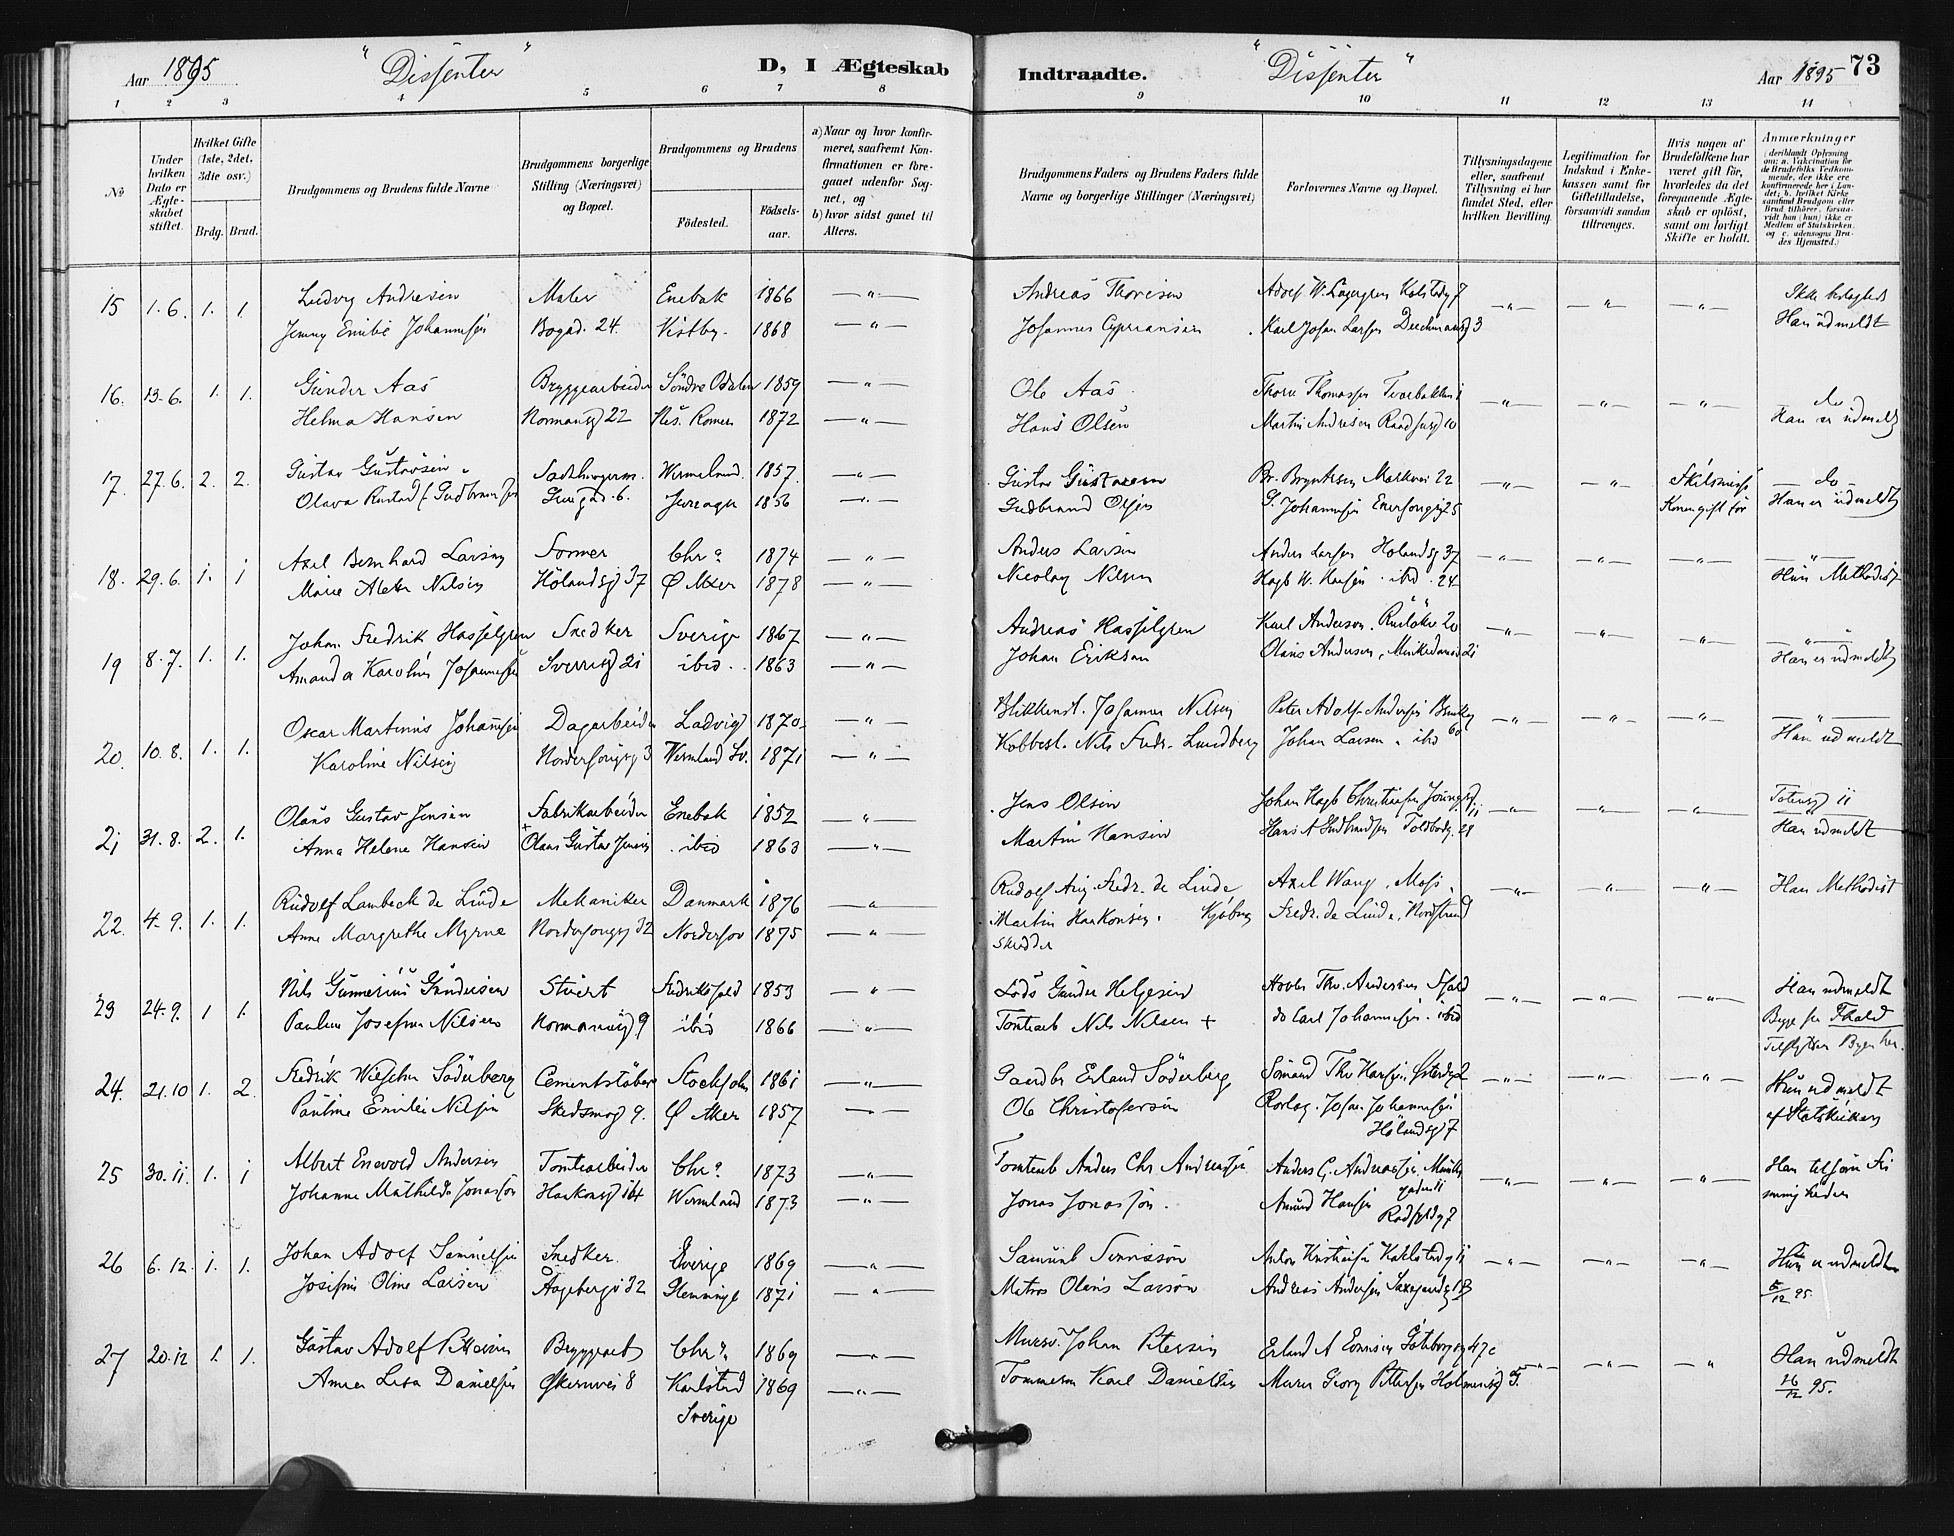 Aar 1895 "Dissenter" D, I Ægteskab Indtraadte. "Dissenter" Aar 1895 73
1 2 3 4 5 6 7 8 9 10 11 12 13 14
№
Under hvilken Dato er Ægteskabet stiftet.
Hvilket Gifte (1ste, 2det, 3die osv.)
Brdg. Brud.
Brudgommens og Brudens fulde Navne
Brudgommens borgerlige Stilling (Næringsvei) og Bopæl.
Brudgommens og Brudens
Fødested. Fødselsaar.
a) Naar og hvor konfirmeret, saafremt Konfirmationen er foregaaet udenfor Sognet, og
b) hvor sidst gaaet til Alters.
Brudgommens Faders og Brudens Faders fulde Navne og borgerlige Stillinger (Næringsvei)
Forlovernes Navne og Bopæl.
Tillysningsdagene eller, saafremt Tillysning ei har fundet Sted, efter hvilken Bevilling.
Legitimation for Indskud i Enkekassen samt for Giftetilladelse, forsaavidt saadan tiltrænges.
Hvis nogen af Brudefolkene har været gift før, hvorledes da det foregaaende Ægteskab er opløst, samt om lovligt Skifte er holdt.
Anmærkninger
(deriblandt Oplysning om: a. Vakcination for de Brudefolks Vedkommende, der ikke ere konfirmerede her i Landet; b. hvilket Kirkesamfund Brudgom eller Brud tilhører, forsaavidt han (hun) ikke er Medlem af Statskirken, og c. udensogns Brudes Hjemsted.)
15 1.6. 1. 1 Ludvig Andresen Maler Enebak 1866 —"— Andreas Thoresen Adolf W. Lagergren Karlstadg 7 —"— —"— —"—
Jenny Emilie Johannesen Bogad. 24. Vestby. 1868 —"— Johannes Cypriansen Karl Johan Larsen 3 Han udmeldt
16. 13.6. 1. 1. Gunder Aas Bryggearbeider Söndre Odalen 1859 —"— Ole Aas Thore Thomassen —"— —"— —"— do
Helma Hansen Normansg 22 Nes. Romer. 1872 —"— Hans Olsen Martin Andresen 10 Han er udmeldt
17. 27.6. 2. 2. Gustav Gustavsen Wermland. 1857. —"— Gustav Gustavsen Br. Bryntesen Markvei 22 —"— —"— Skilsmisse —do—
Olava Rustad f. Gudbrandsen 6. 1856 —"— Gudbrand Olsen Johannesen 25 Konen gift før Han er udmeldt
18. 29.6. 1. 1 Axel Bernhard Larsen Chr.a 1874 —"— Anders Larsen Anders Larsen Holandsg 37 —"— —"— —"— —"—
Marie Nilsen Hölandsg 37 Ø Aker 1878 —"— Nicolay Nilsen Hagb W. Hansen ibid. 24 Hun Methodist
19 8.7. 1. 1. Johan Fredrik Hasselgren Snedker Sverige 1867 —"— Andreas Hasselgren Karl Anderson. Rusløkv 20 —"— —"— —"— —"—
Amanda Karolin Johannesen Sverresg 21 ibid. 1863 —"— Johan Eriksen Olaus Andersen, 21 Han er udmeldt
20. 10.8. 1. 1. Oscar Martinius Johannesen Dagarbeider Ladvig 1870 —"— Blikkensl. Johannes Nilsen Peter Adolf Andersen —"— —"— —"— —"—
Karoline Nilsen 3 Wermland Sv. 1871 —"— Kobbesl. Nils Fredr. Lundberg Johan Larsen ibid 60 Han udmeldt
21 31.8. 2. 1. Olaus Gustav Jensen Fabrikarbeider Enebak 1852 —"— Jens Olsen Johan Hagb Christiansen Youngsg. 11 —"— —"— —"— Totensg 11
Anna Helene Hansen + Olaus Gustav Jensen ibid 1863 —"— Martin Hansen Hans A Gulbrandsen Toldbodg. 28 Han udmeldt
22. 4.9. 1. 1. Rudolf Lambeck de Linde Mekaniker Danmark 1876 —"— Rudolf Aug. Fredr. de Linde Axel Wang. Moss. —"— —"— —"— Han Methodist
Anna Margrethe Myrne 32 Norderhov 1875 —"— Martin Haakonsen. Fredr. de Linde. Nordstrand
Skredder
23 24.9. 1 1. Nils Gunnerius Gundersen Stuert Fredrikshald 1853 —"— Lods Gunder Helgesen Andersen Fhald —"— —"— —"— Han udmeldt
Pauline Josefine Nilsen Normansg 9 ibid 1866 —"— Tomtearb Nils Nilsen + do Carl Johannesen. ibid Fhald
24. 21.10 1. 2. Fredrik Wilhelm Söderberg Cementstöber Stockholm 1861 —"— Erland Söderberg Sömand Thv Hansen. 2 —"— —"— —"— Hun udmeldt
Pauline Emilie Nilsen Skedsmog 9. Ø Aker 1857 —"— Ole Christofersen Johannesen Hölandsg 7 af Statskirken
25 30.11. 1. 1 Albert Enevold Andersen Tomtearbeider Chr.a 1873 —"— Tomtearb Anders Chr Andreassen Anders G. Andreassen —"— —"— —"— Han
Johanne Mathilde Jonasson Haakonsg 14 Wermland 1873 —"— Jonas Jonasson. Amund Hansen 7
26 6.12. 1. 1. Johan Adolf Samuelsen Snedker. Sverige 1869 —"— Anton Kristiansen Karlstadg 11 —"— —"— —"— Hun er udmeldt
Josefine Oline Larsen Aagebergv 32 1871 —"— Matros Olaus Larson Andreas Andersen Saxegaardsg 13 5/12 95.
27 20.12 1. 1. Gustav Adolf Pettersen Bryggearb Chr.a 1869 —"— Murer. Johan Petersen Erland A Göteborgg 47c —"— —"— —"— Han udmeldt
Anna Lisa Danielsen Økernvei 8 Karlstad 1869 —"— Tømmerm Karl Danielsen Murer Georg Pettersen 5. 16/12 95.
Sverige